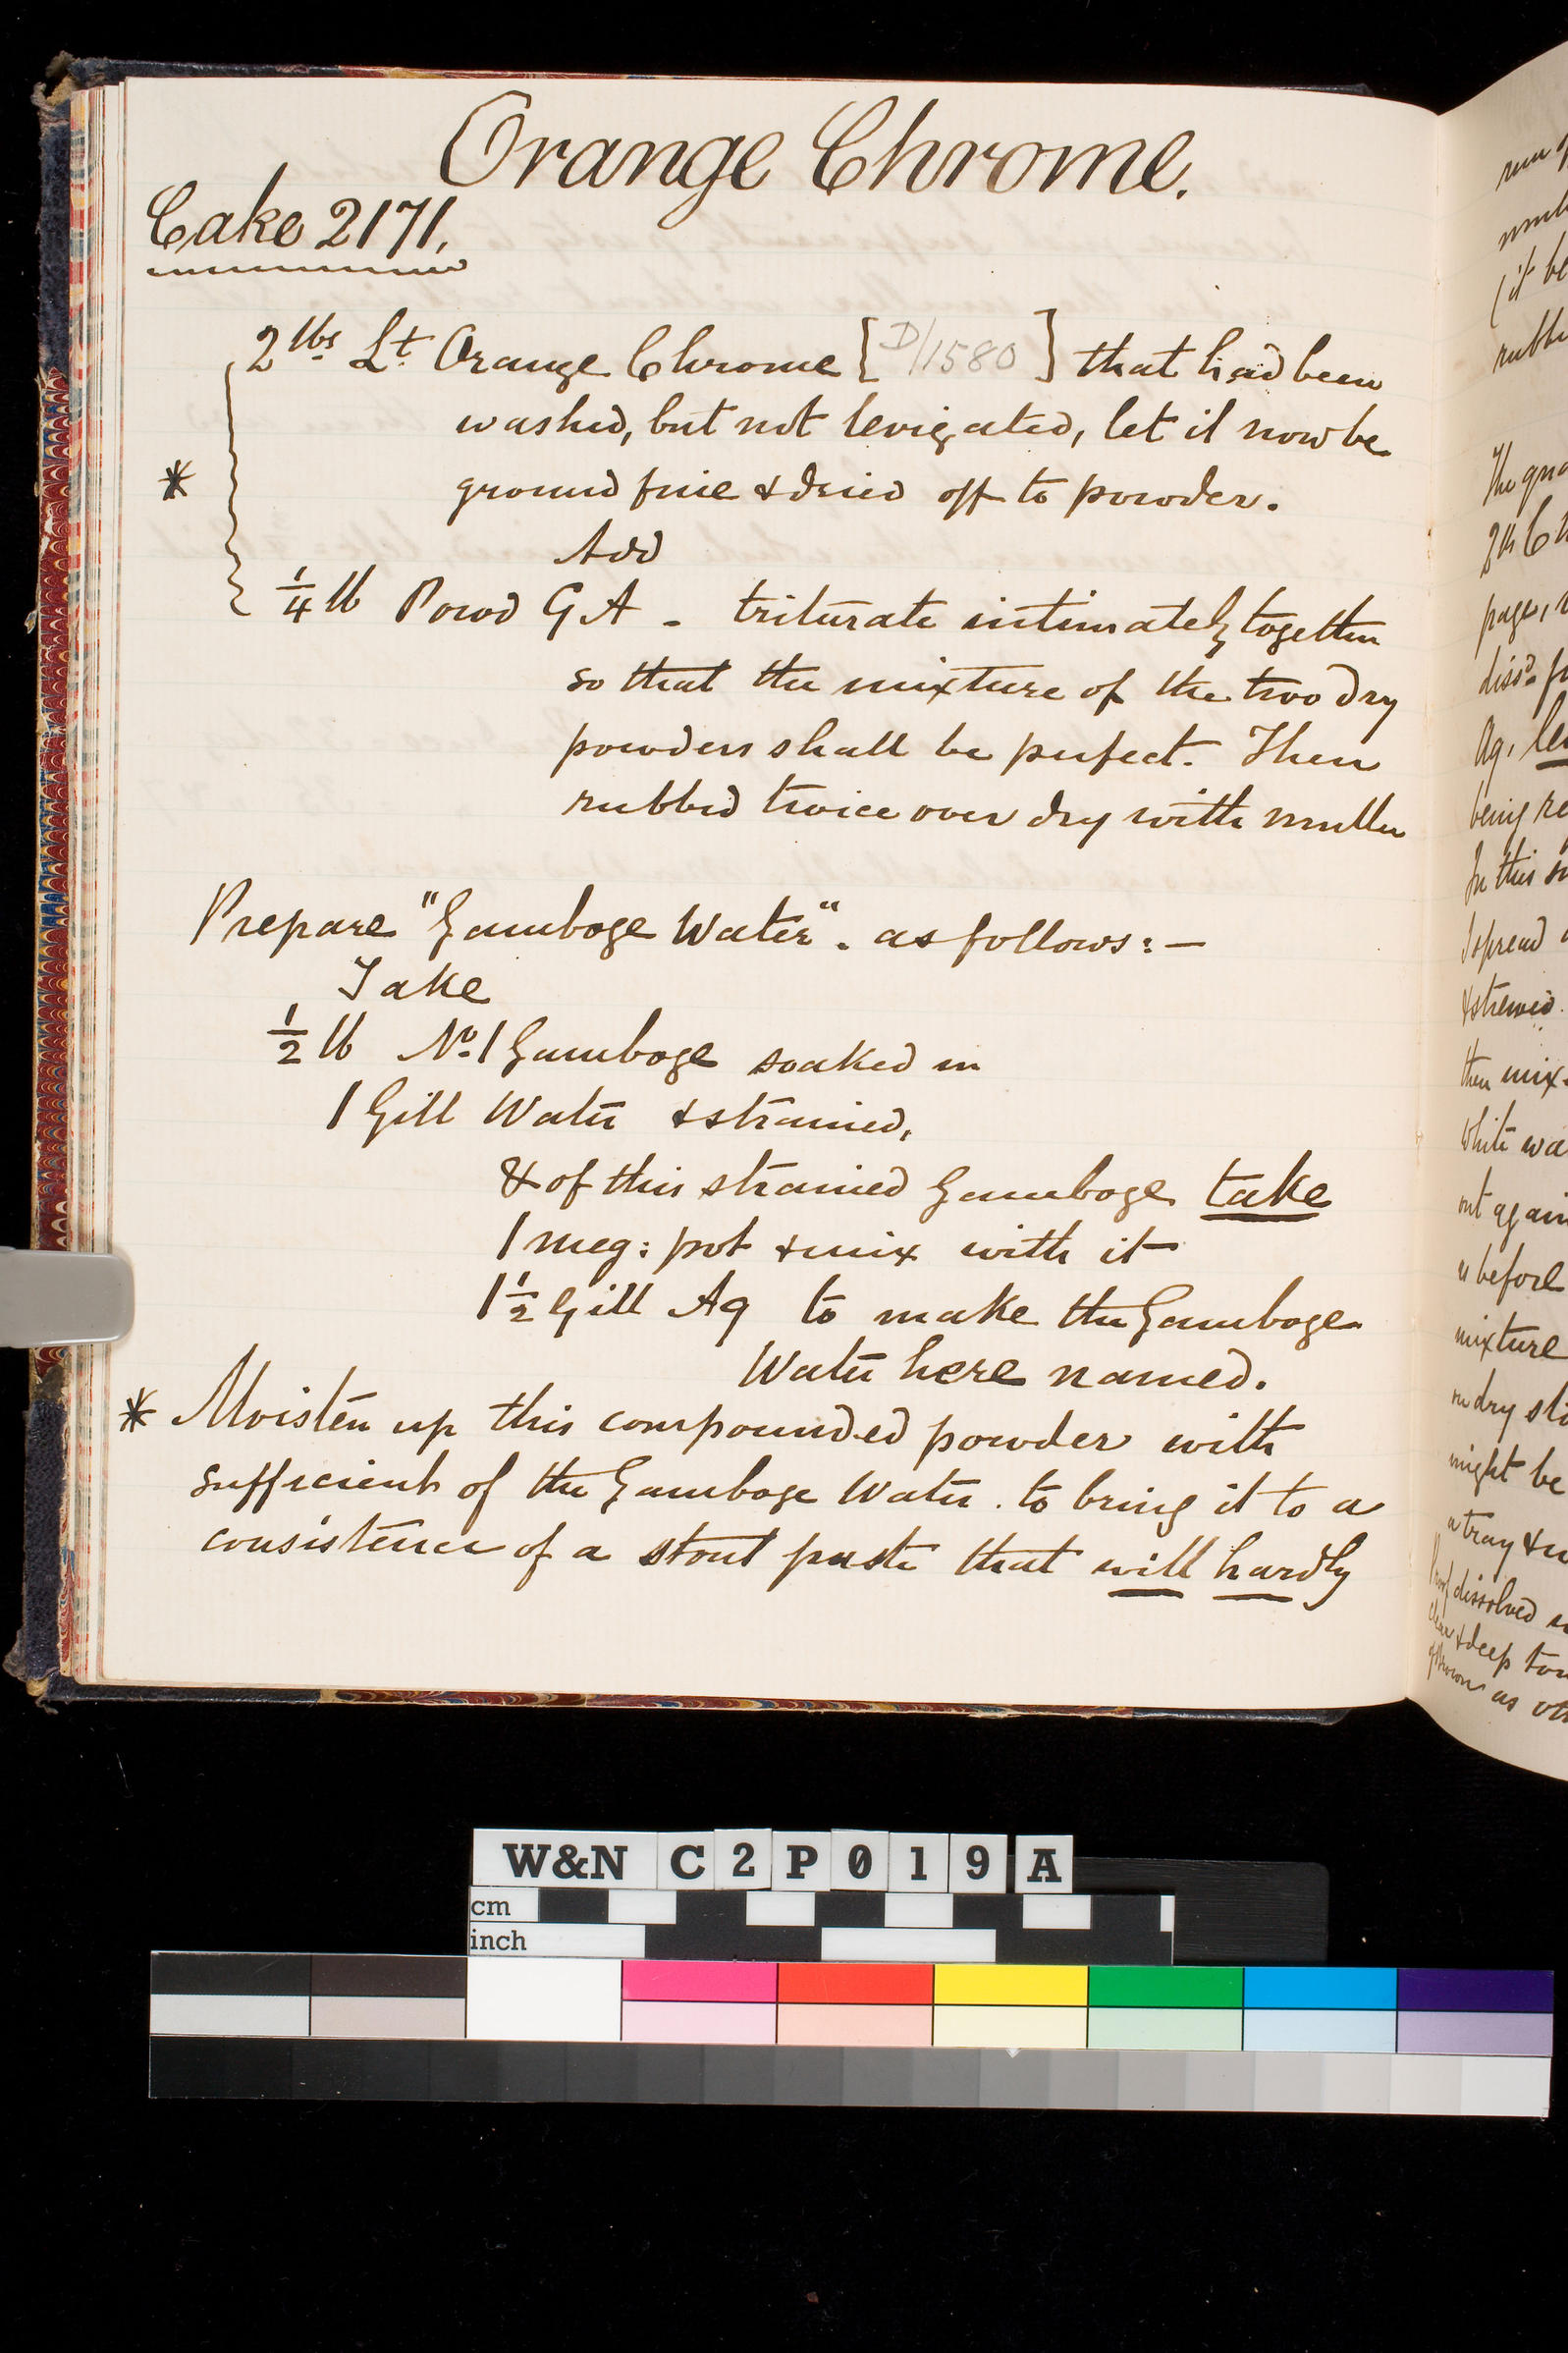 Orange Chrome.
Cake 2171.
2 lbs Lt. Orange Chrome [D/1580] that had been
washed, but not levigated, let it now be
* ground fine & dried off to powder.
Add
1/4 lb Powd G A - triturate intimately together
so that the mixture of the two dry
powders shall be perfect. Then
rubbed twice over dry with muller
Prepare "Gamboge Water". as follows:—
Take
1/2 lb No. 1 Gamboge soaked in
1 Gill Water & strained,
& of this strained Gamboge take
1 meg: pot & mix with it
1 1/2 Gill Aq to make the Gamboge
Water here named.
* Moisten up this compounded powder with
sufficient of the Gamboge Water. to bring it to a
consistence of a stout paste that will hardly
(it be
The
page,
Aq.
being
In this
spread
then mix
white
out again
before
mixture
dry
might be
a tray &
dissolved
& deep
as
W&N C2P019A
cm
inch